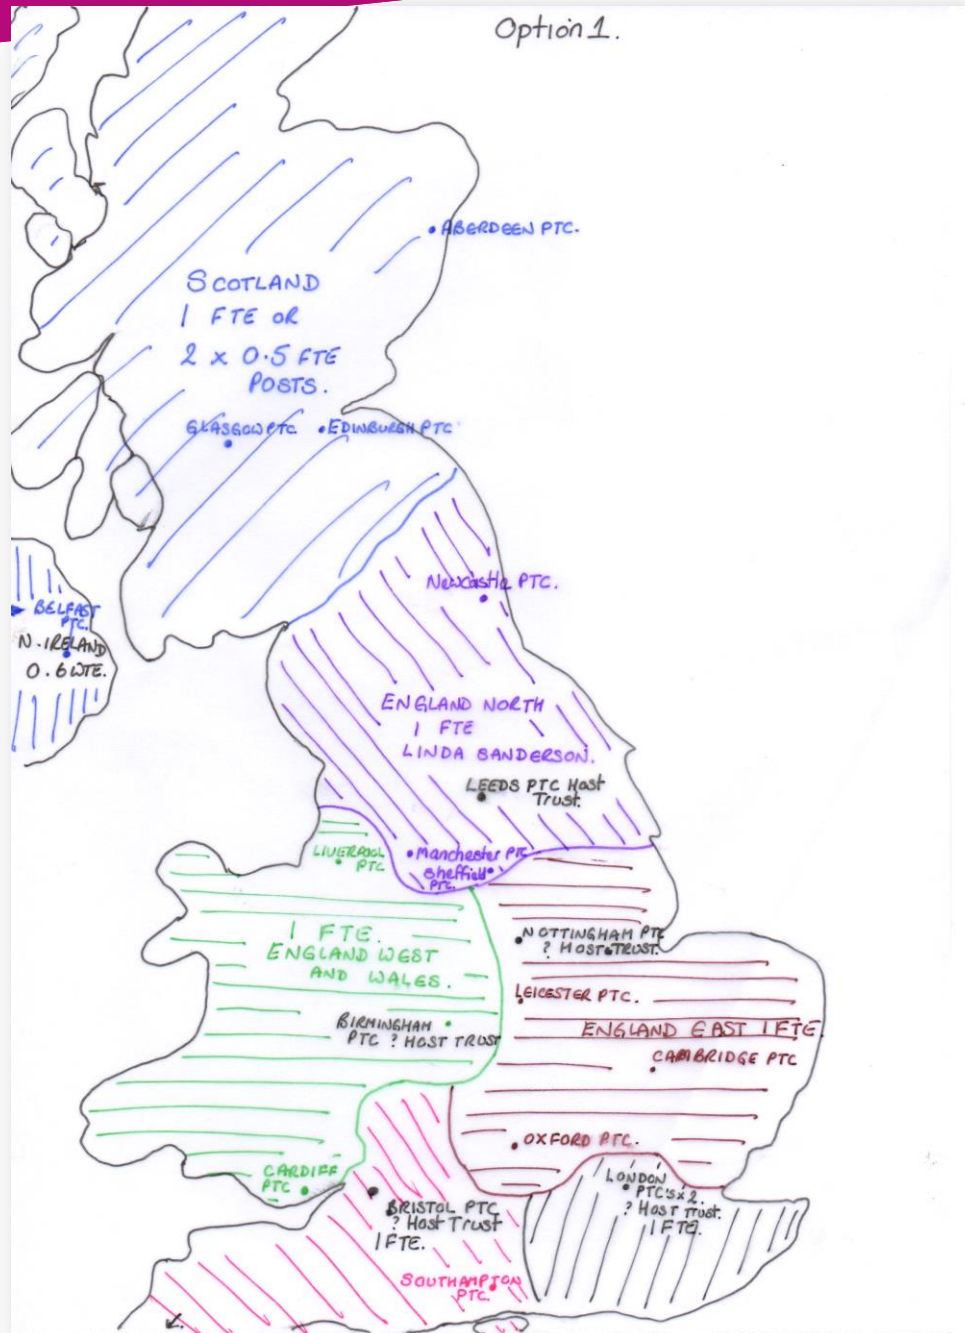 Option 1.
• ABERDEEN PTC.
SCOTLAND
1 FTE OR
2 x 0.5 FTE
POSTS.
GLASGOW PTC
• EDINBURGH PTC
Newcastle PTC.
BELFAST
PTC.
N. IRELAND
0.6 WTE.
ENGLAND NORTH
1 FTE
LINDA SANDERSON.
LEEDS PTC Host
Trust.
LIVERPOOL
PTC
• Manchester PTC
Sheffield
PTC.
1 FTE.
ENGLAND WEST
AND WALES.
NOTTINGHAM PTC
? HOST TRUST.
LEICESTER PTC.
BIRMINGHAM
PTC ? HOST TRUST
ENGLAND EAST 1 FTE.
CAMBRIDGE PTC
OXFORD PTC.
CARDIFF
PTC
LONDON
PTC'S x 2.
? Host Trust.
1 FTE.
BRISTOL PTC
? Host Trust
1 FTE.
SOUTHAMPTON
PTC.